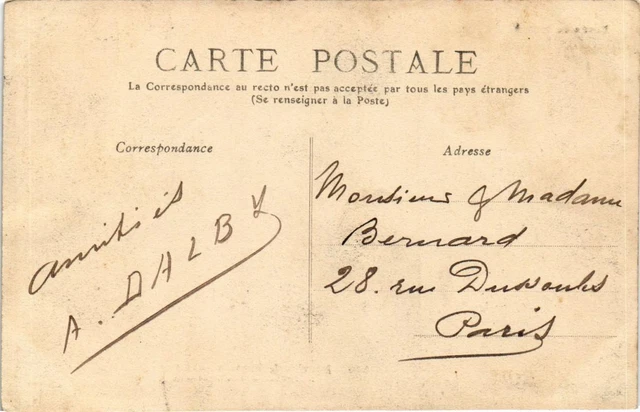 CARTE POSTALE
La Correspondance au recto n'est pas acceptée par tous les pays étrangers
(Se renseigner à la Poste)
Correspondance
Adresse
amitiés
A. DALBY
Monsieur & Madame
Bernard
28. rue Dussoubs
Paris